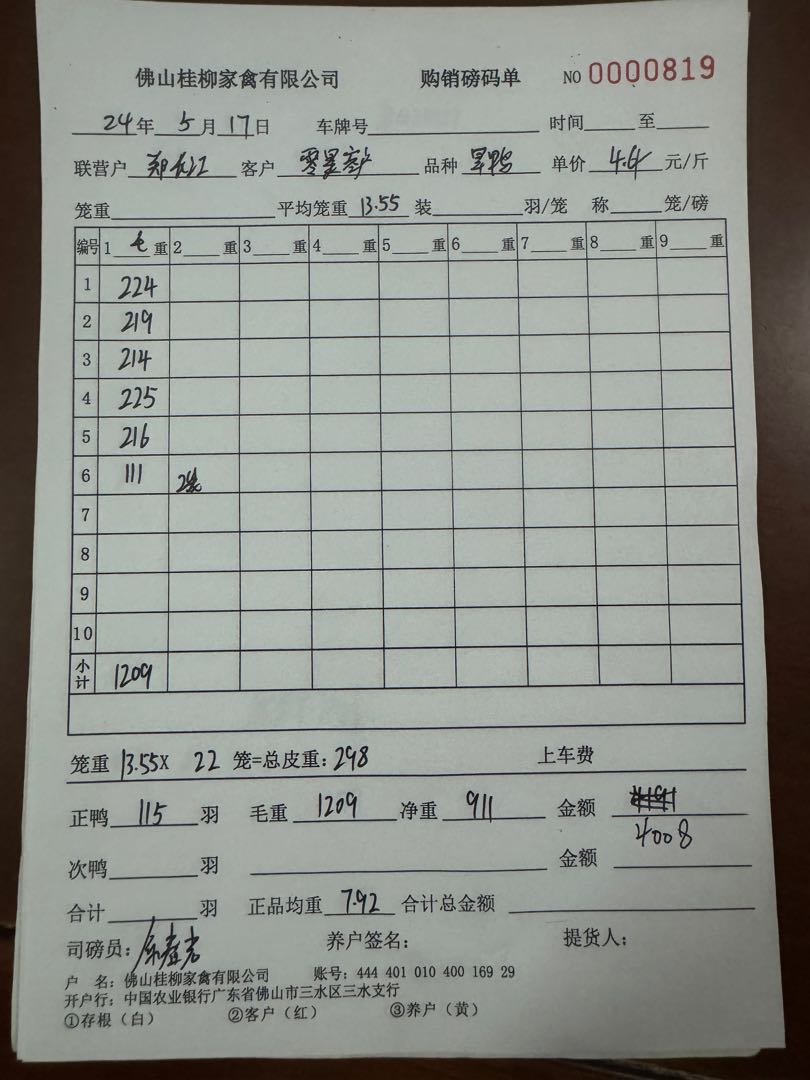 佛山桂柳家禽有限公司 购销磅码单 NO 0000819
24年 5月17日 车牌号 时间 至
联营户 郑长江 客户 零星客户 品种 旱鸭 单价 4.4 元/斤
笼重 平均笼重 13.55 装 羽/笼 称 笼/磅
编号 1 毛 重 2 重 3 重 4 重 5 重 6 重 7 重 8 重 9 重
1 224
2 219
3 214
4 225
5 216
6 111 2笼
7
8
9
10
小计 1209
笼重 13.55X 22 笼=总皮重: 298 上车费
正鸭 115 羽 毛重 1209 净重 911 金额
4008
次鸭 羽 金额
合计 羽 正品均重 7.92 合计总金额
司磅员: 养户签名: 提货人:
户 名: 佛山桂柳家禽有限公司 账号: 444 401 010 400 169 29
开户行: 中国农业银行广东省佛山市三水区三水支行
①存根（白） ②客户（红） ③养户（黄）